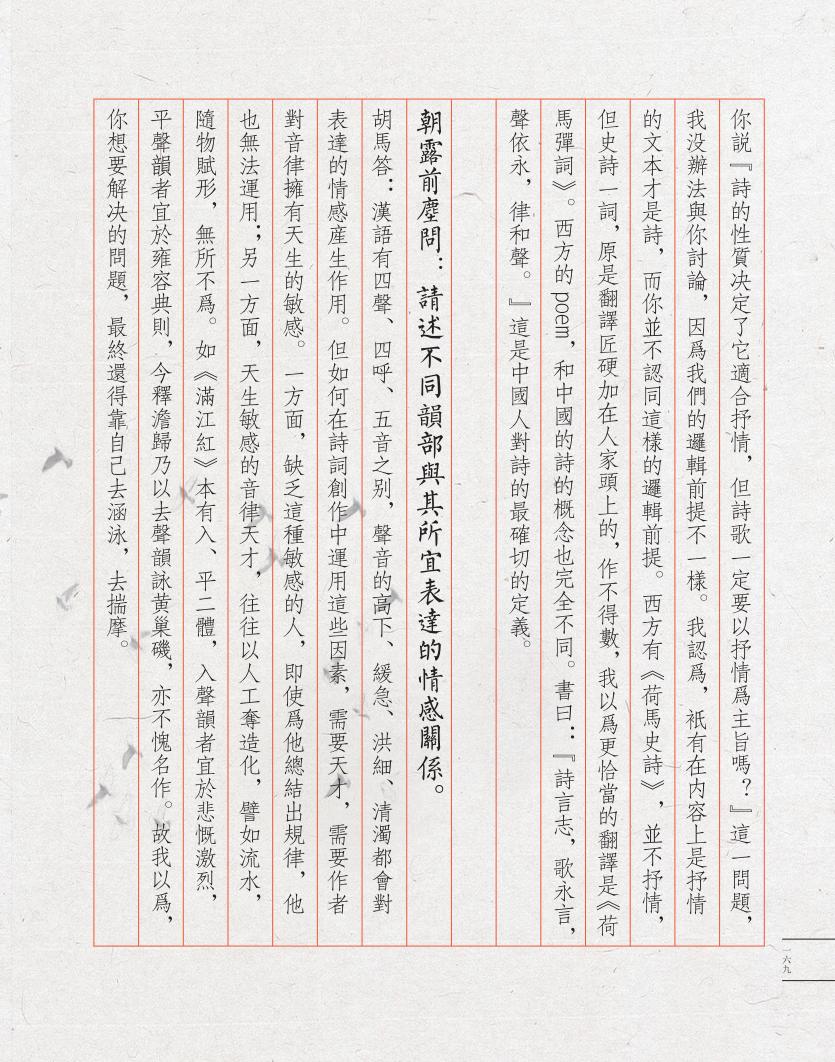 你説『詩的性質决定了它適合抒情，但詩歌一定要以抒情爲主旨嗎？』這一問題，
我没辦法與你討論，因爲我們的邏輯前提不一樣。我認爲，祇有在内容上是抒情
的文本才是詩，而你並不認同這樣的邏輯前提。西方有《荷馬史詩》，並不抒情，
但史詩一詞，原是翻譯匠硬加在人家頭上的，作不得數，我以爲更恰當的翻譯是《荷
馬彈詞》。西方的poem，和中國的詩的概念也完全不同。書曰：『詩言志，歌永言，
聲依永，律和聲。』這是中國人對詩的最確切的定義。
朝露前塵問：請述不同韻部與其所宜表達的情感關係。
胡馬答：漢語有四聲、四呼、五音之别，聲音的高下、緩急、洪細、清濁都會對
表達的情感産生作用。但如何在詩詞創作中運用這些因素，需要天才，需要作者
對音律擁有天生的敏感。一方面，缺乏這種敏感的人，即使爲他總結出規律，他
也無法運用；另一方面，天生敏感的音律天才，往往以人工奪造化，譬如流水，
隨物賦形，無所不爲。如《滿江紅》本有入、平二體，入聲韻者宜於悲慨激烈，
平聲韻者宜於雍容典則，今釋澹歸乃以去聲韻詠黄巢磯，亦不愧名作。故我以爲，
你想要解决的問題，最終還得靠自己去涵泳，去揣摩。
一六九